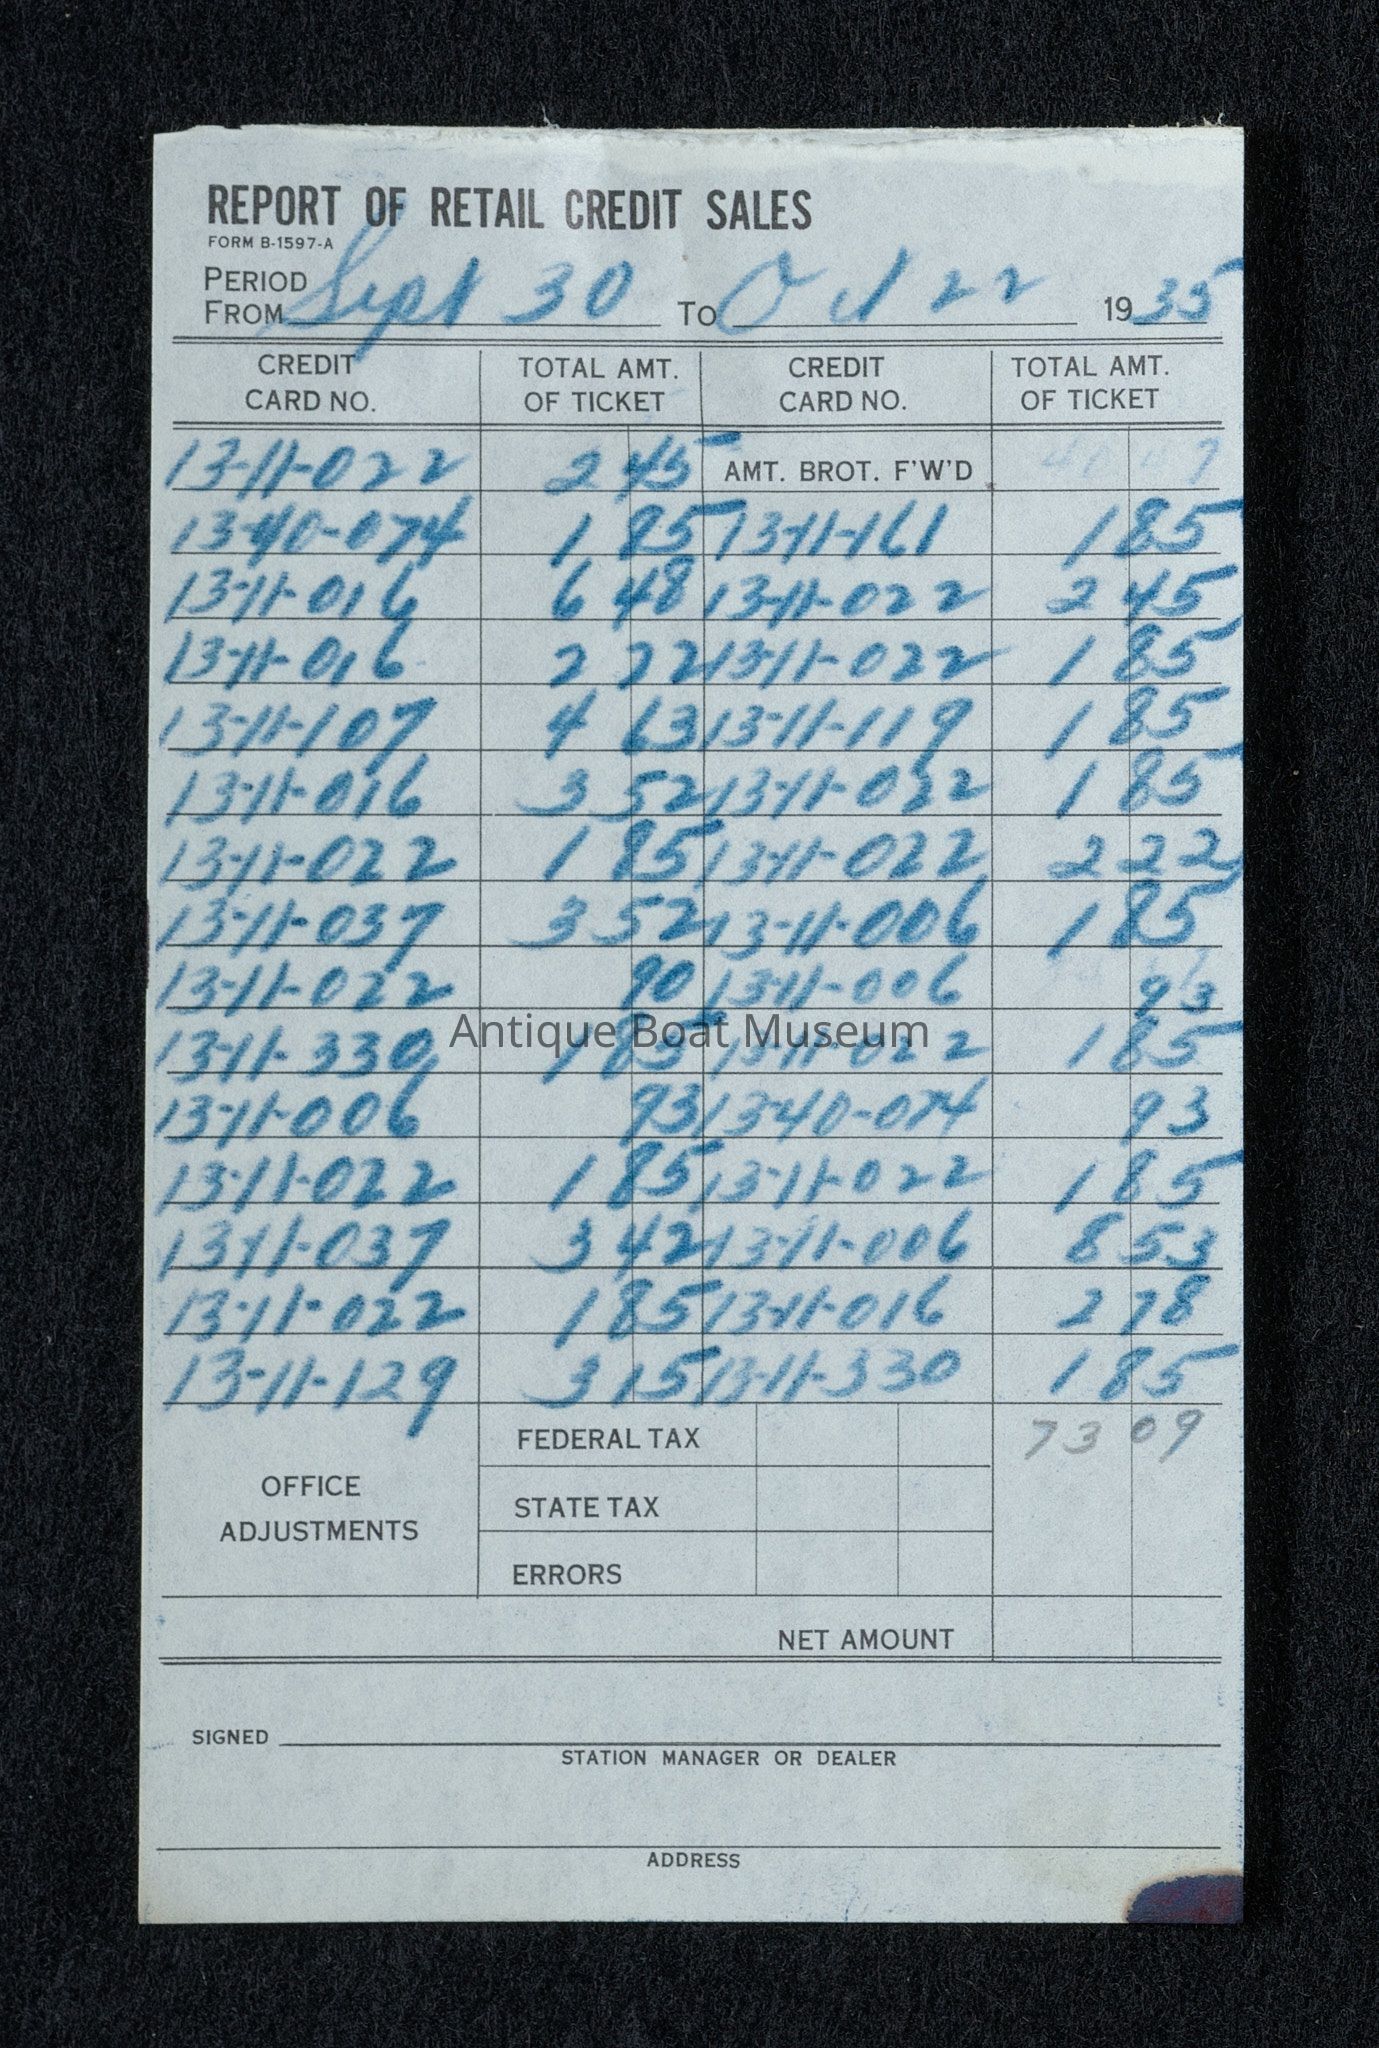 REPORT OF RETAIL CREDIT SALES
FORM B-1597-A
PERIOD
FROM Sept 30 TO Oct 22 1935
CREDIT CARD NO. TOTAL AMT. OF TICKET CREDIT CARD NO. TOTAL AMT. OF TICKET
13-11-022 2 45 AMT. BROT. F'W'D
13-40-074 1 85 13-11-161 1 85
13-11-016 6 48 13-11-022 2 45
13-11-016 2 22 13-11-022 1 85
13-11-107 4 63 13-11-119 1 85
13-11-016 3 52 13-11-022 1 85
13-11-022 1 85 13-11-022 2 22
13-11-037 3 52 13-11-006 1 85
13-11-022 90 13-11-006 93
13-11-330 1 85 13-11-022 1 85
Antique Boat Museum
13-11-006 93 13-40-074 93
13-11-022 1 85 13-11-022 1 85
13-11-037 3 42 13-11-006 8 53
13-11-022 1 85 13-11-016 2 78
13-11-129 3 15 13-11-330 1 85
FEDERAL TAX 73 09
OFFICE ADJUSTMENTS
STATE TAX
ERRORS
NET AMOUNT
SIGNED
STATION MANAGER OR DEALER
ADDRESS